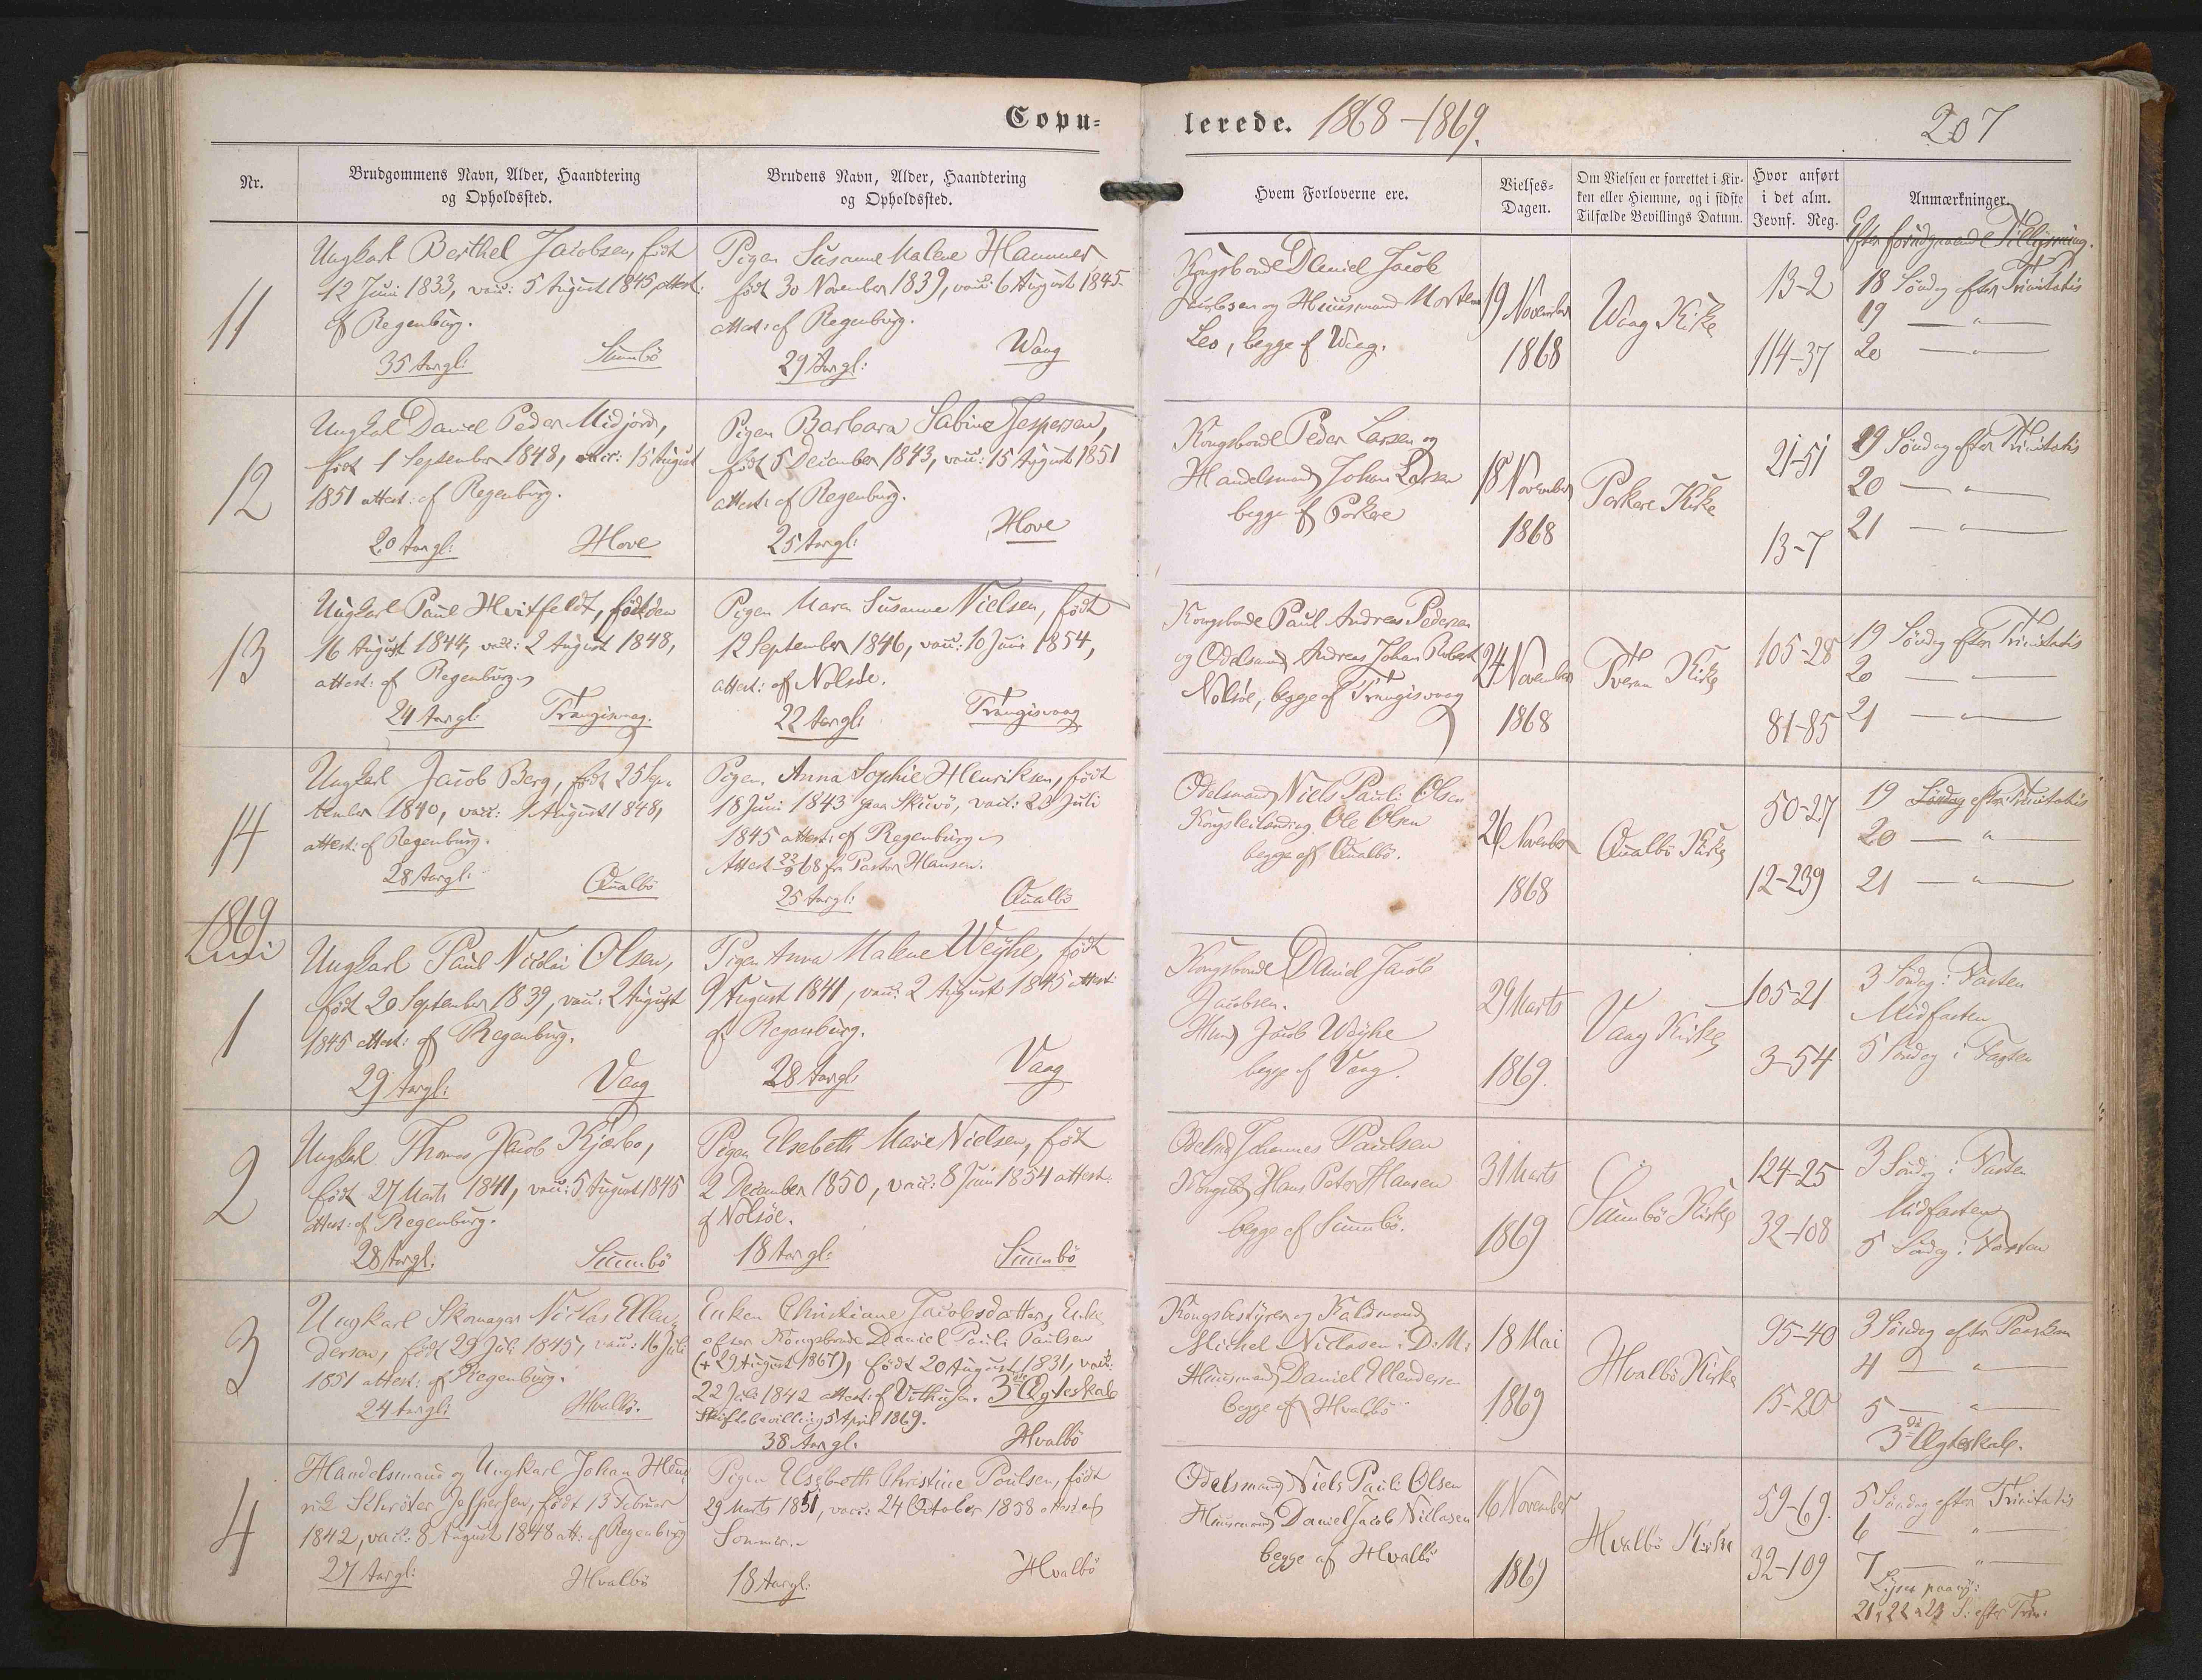 Copu-
lerede. 1868-1869.
207
Nr.
Brudgommens Navn, Alder, Haandtering
og Opholdssted.
Brudens Navn, Alder, Haandtering
og Opholdssted.
Hvem Forloverne ere.
Vielses-
Dagen.
Om Vielsen er forrettet i Kir-
ken eller Hjemme, og i sidste
Tilfælde Bevillings Datum.
Hvor anført
i det alm.
Jevnf. Reg.
Anmærkninger.
Efter forudgaaende Tillysning.
11
Ungkarl Berthel Jacobsen, født
12 Juni 1833, vacc: 5 August 1845 attest:
af Regenburg.
35 Aar gl: Sumbö
Pigen Susanne Malene Hammer
født 30 November 1839, vacc: 6 August 1845
attest: af Regenburg.
29 Aar gl: Waag
Kongsbonde Daniel Jacob
Jacobsen og Huusmand Morten
Leo, begge af Waag.
19 November
1868
Waag Kirke
13-2
114-37
18 Söndag efter Trinitatis
19 — " —
20 — " —
12
Ungkarl Daniel Peder Midjord,
født 1 September 1848, vacc: 15 August
1851 attest: af Regenburg.
20 Aar gl: Hove
Pigen Barbara Sabine Jespersen,
født 5 December 1843, vacc: 15 August 1851
attest: af Regenburg.
25 Aar gl: Hove
Kongsbonde Peder Larsen og
Handelsmand Johan Larsen
begge af Porkere
18 November
1868
Porkere Kirke
21-51
13-7
19 Söndag efter Trinitatis
20 — " —
21 — " —
13
Ungkarl Paul Hvitfeldt, född den
16 August 1844, vacc: 2 August 1848,
attest: af Regenburg
24 Aar gl: Trangisvaag.
Pigen Maren Susanne Nielsen, født
12 September 1846, vacc: 10 Juni 1854,
attest: af Nolsöe.
22 Aar gl: Trangisvaag
Kongsbonde Paul Andreas Pedersen
og Odelsmand Andreas Johan Robert
Nolsöe, begge af Trangisvaag
24 November
1868
Tveraa Kirke
105-28
81-85
19 Söndag efter Trinitatis
20 — " —
21 — " —
14
Ungkarl Jacob Berg, født 25 Sep-
tember 1840, vacc: 1 August 1848,
attest: af Regenburg.
28 Aar gl: Qualbö
Pigen Anna Sophie Henriksen, født
18 Juni 1843 paa Skuvö, vacc: 23 Juli
1845 attest: af Regenburg
Attest 22/9 68 fra Pastor Hansen.
25 Aar gl: Qualbö
Odelsmand Niels Pauli Olsen
Kongsleilænding Ole Olsen
begge af Qualbö.
26 November
1868
Qualbö Kirke
50-27
12-239
19 Söndag efter Trinitatis
20 — " —
21 — " —
1869
1
Ungkarl Paul Nicolai Olsen,
født 20 September 1839, vacc: 2 August
1845 attest: af Regenburg.
29 Aar gl: Vaag
Pigen Anna Malene Weyhe, født
9 August 1841, vacc: 2 August 1845 attest:
af Regenburg.
28 Aar gl: Vaag
Kongsbonde Daniel Jacob
Jacobsen.
Hmd Jacob Weyhe
begge af Vaag.
29 Marts
1869.
Vaag Kirke
105-21
3-54
3 Söndag i Fasten
Midfasten
5 Söndag i Fasten
2
Ungkarl Thomas Jacob Kjærbo,
født 27 Marts 1841, vacc: 5 August 1845
attest: af Regenburg.
28 Aar gl: Sumbö
Pigen Elsebeth Marie Nielsen, født
2 December 1850, vacc: 8 Juni 1854 attest:
af Nolsöe.
18 Aar gl: Sumbö
Odelsmd Johannes Paulsen
Kongsb. Hans Peter Hansen
begge af Sumbö.
31 Marts
1869
Sumbö Kirke
124-25
32-108
3 Söndag i Fasten
Midfasten
5 Söndag i Fasten
3
Ungkarl Skomager Niclas Ellen-
dersen, født 29 Juli 1845, vacc: 16 Juli
1851 attest: af Regenburg.
24 Aar gl: Hvalbö.
Enken Christiane Jacobsdatter, Enke
efter Kongsbonde Daniel Pauli Paulsen
(+ 29 August 1867), født 20 August 1831, vacc:
22 Juli 1842 attest: af Vithusen. 3die Ægteskab
Skiftebevilling 5 April 1869.
38 Aar gl: Hvalbö
Kongsbestyrer og Kaldsmand
Michel Niclasen D.M.
Huusmand Daniel Ellendersen
begge af Hvalbö
18 Mai
1869
Hvalbö Kirke
95-40
15-20
3 Söndag efter Paasken
4 — " —
5 — " —
3die Ægteskab.
4
Handelsmand og Ungkarl Johan Hend-
rik Schröter Jespersen, født 13 Februar
1842, vacc: 8 August 1848 att: af Regenburg
27 Aar gl: Hvalbö
Pigen Elsebeth Christine Poulsen, født
29 Marts 1851, vacc: 24 October 1858 attest af
Sommer.
18 Aar gl: Hvalbö
Odelsmand Niels Pauli Olsen
Huusmand Daniel Jacob Niclasen
begge af Hvalbö
16 November
1869
Hvalbö Kirke
59-69.
32-109
5 Söndag efter Trinitatis
6 — " —
7 — " —
Lyses paany:
21, 22 & 23 S: efter Trin: